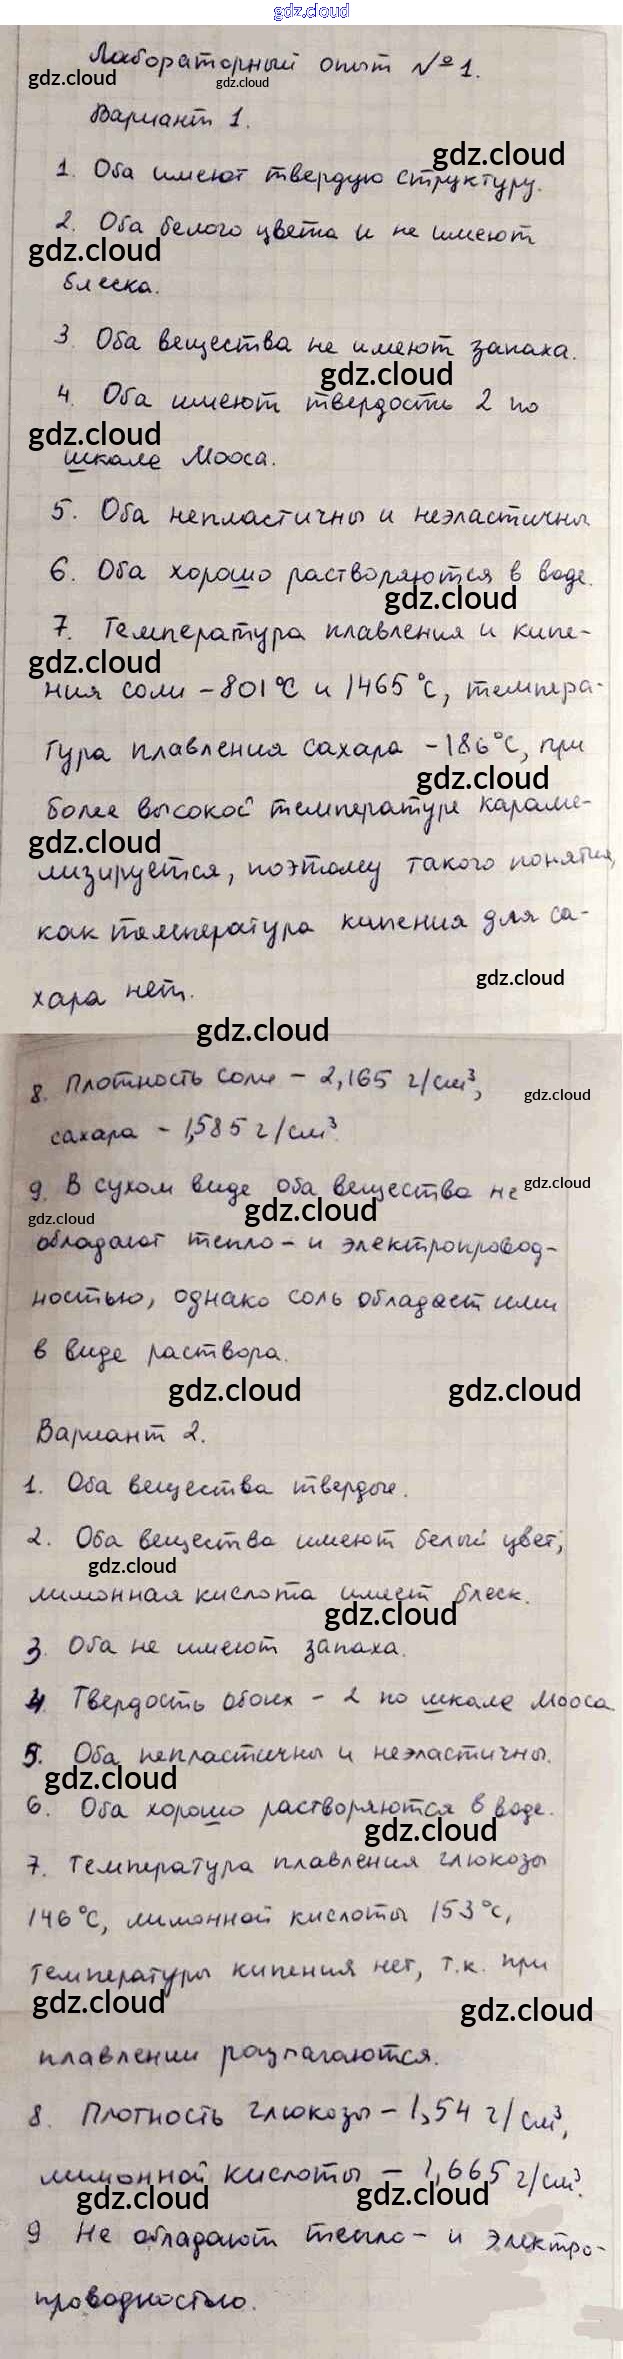 gdz.cloud
Лабораторный опыт №1.
gdz.cloud
gdz.cloud
Вариант 1.
gdz.cloud
1. Оба имеют твердую структуру.
2. Оба белого цвета и не имеют
gdz.cloud
блеска.
3. Оба вещества не имеют запаха.
gdz.cloud
4. Оба имеют твердость 2 по
gdz.cloud
шкале Мооса.
5. Оба непластичны и неэластичны
6. Оба хорошо растворяются в воде.
gdz.cloud
7. Температура плавления и кипе-
gdz.cloud
ния соли - 801°С и 1465°С, темпера-
тура плавления сахара - 186°С, при
gdz.cloud
более высокой температуре караме-
gdz.cloud
лизируется, поэтому такого понятия,
как температура кипения для са-
gdz.cloud
хара нет.
gdz.cloud
8. Плотность соли - 2,165 г/см³,
gdz.cloud
сахара - 1,585 г/см³.
9. В сухом виде оба вещества не
gdz.cloud
gdz.cloud
gdz.cloud
обладают тепло- и электропровод-
ностью, однако соль обладает ими
в виде раствора.
gdz.cloud
gdz.cloud
Вариант 2.
1. Оба вещества твердые.
2. Оба вещества имеют белый цвет,
gdz.cloud
лимонная кислота имеет блеск.
gdz.cloud
3. Оба не имеют запаха.
4. Твердость обоих - 2 по шкале Мооса
5. Оба непластичны и неэластичны.
gdz.cloud
6. Оба хорошо растворяются в воде.
gdz.cloud
7. Температура плавления глюкозы
146°С, лимонной кислоты 153°С,
температуры кипения нет, т.к. при
gdz.cloud
gdz.cloud
плавлении разлагаются.
8. Плотность глюкозы - 1,54 г/см³,
лимонной кислоты - 1,665 г/см³.
gdz.cloud
gdz.cloud
9 Не обладают тепло- и электро-
проводностью.
gdz.cloud